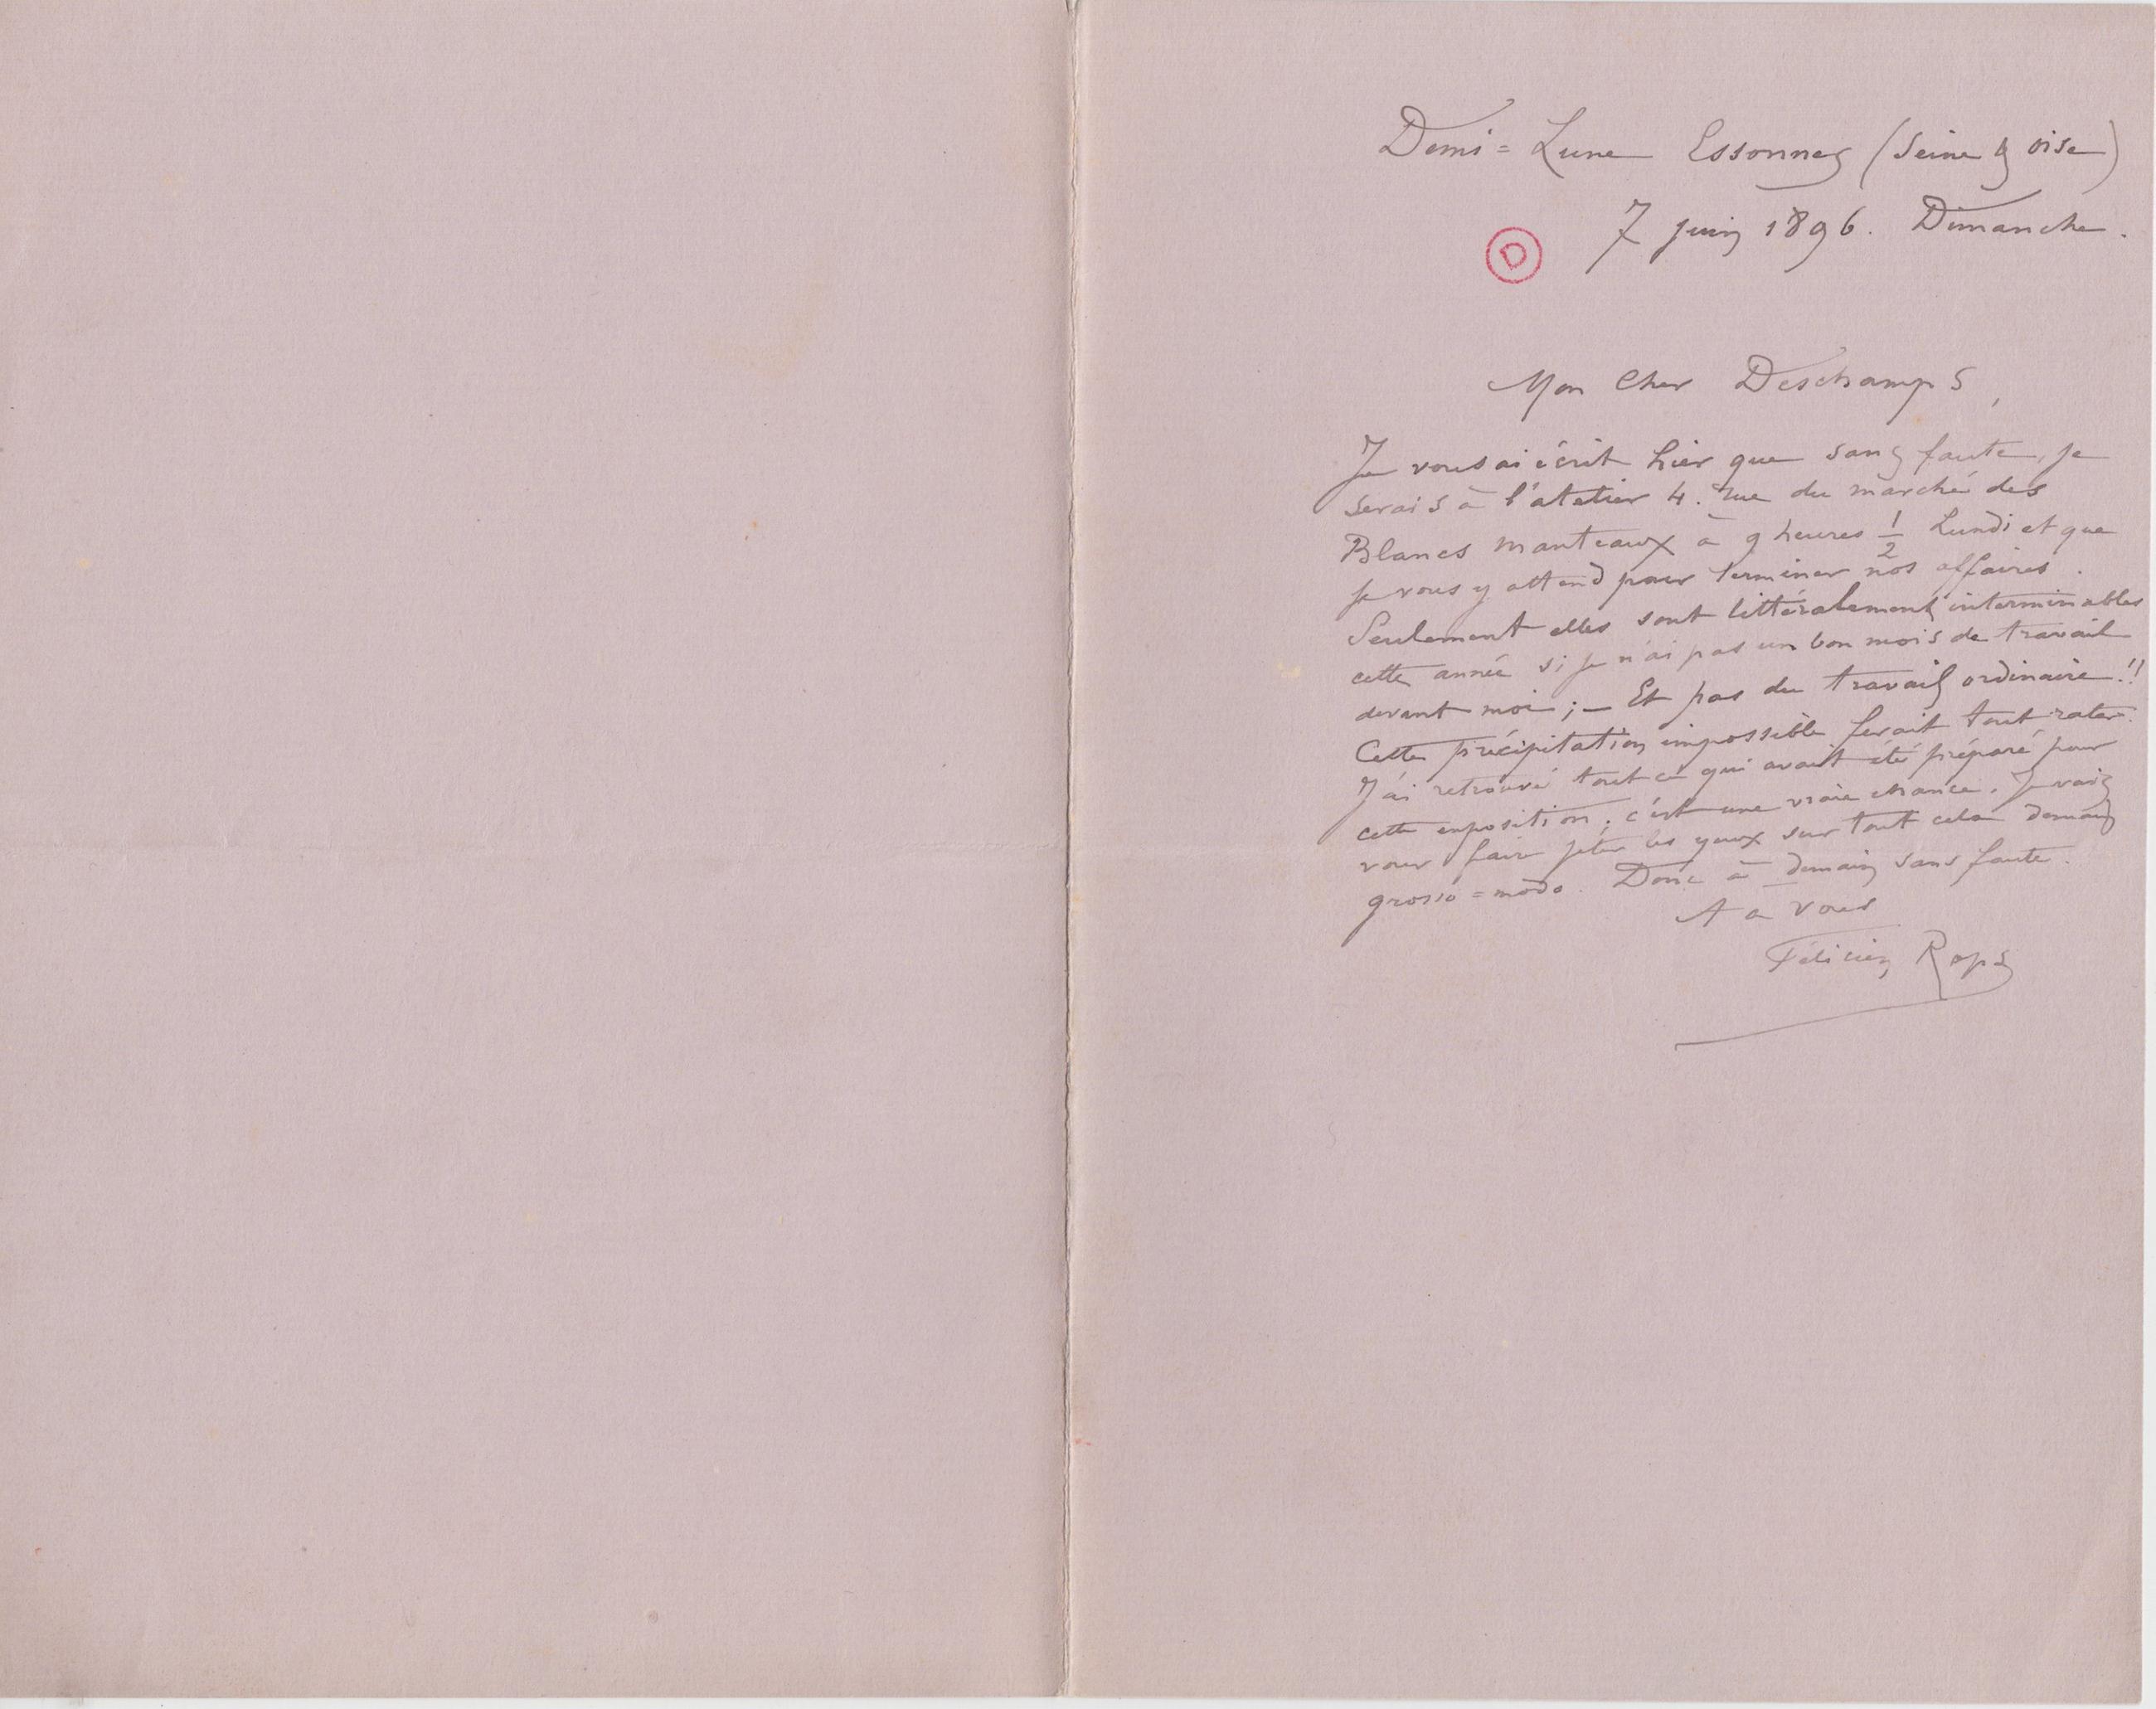 Demi=Lune Essonnes (Seine & oise)
7 juin 1896. Dimanche.
D
Mon Cher Deschamps,
Je vous ai écrit hier que sans faute, je
serais à l'atelier 4. rue du marché des
Blancs manteaux à 9 heures 1/2 Lundi et que
je vous y attend pour terminer nos affaires.
Seulement elles sont littéralement interminables
cette année si je n'ai pas un bon mois de travail
devant moi ; — Et pas du travail ordinaire !!
Cette précipitation impossible ferait tout rater.
J'ai retrouvé tout ce qui avait été préparé pour
cette exposition ; c'est une vraie chance. Je vais
vous faire jeter les yeux sur tout cela demain
grosso=modo. Donc à demain sans faute.
A a vous
Félicien Rops